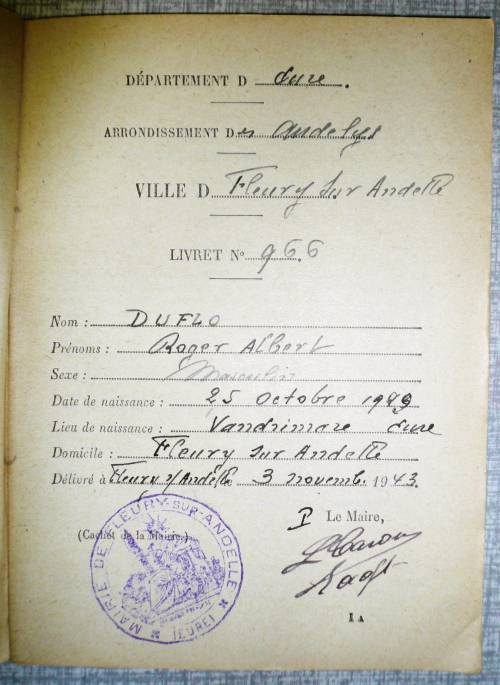 DÉPARTEMENT D Eure.
ARRONDISSEMENT Des Andelys
VILLE D Fleury sur Andelle
LIVRET No 966
Nom : DUFLO
Prénoms : Roger Albert
Sexe : Masculin
Date de naissance : 25 octobre
Lieu de naissance : Vandrimare Eure
Domicile : Fleury sur Andelle
Délivré à Fleury s/ Andelle 3 novembre 1943.
P Le Maire,
(Cachet de la Mairie.)
MAIRIE DE FLEURY-SUR-ANDELLE
(EURE)
IA